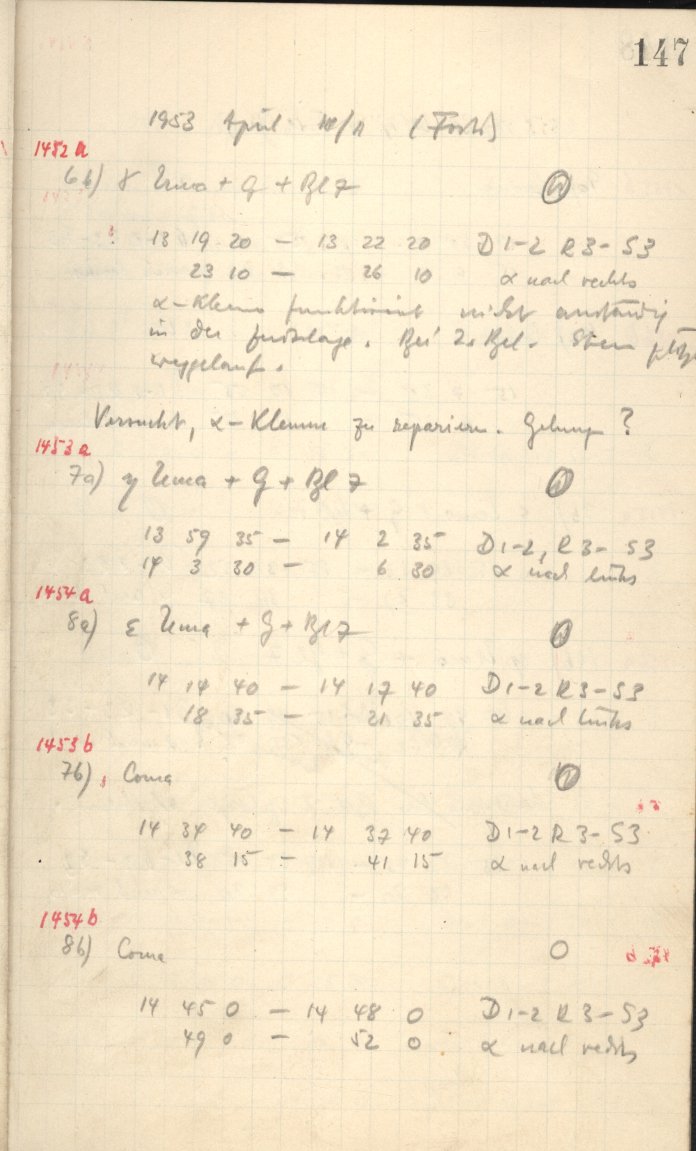 147
1953 April 10/11 (Forts)
1452 a
6b) γ Uma + G + Bl 7
! 13 19 20 — 13 22 20 D 1-2 R 3 - S3
23 10 — 26 10 α nach rechts
α-Klemme funktioniert nicht anständig
in der . Bei 2. Bel. Stern plötzl
weggelauf.
Versucht, α-Klemme zu reparieren. Gelungen ?
1453 a
7a) η Uma + G + Bl 7
13 59 35 — 14 2 35 D 1-2, R 3 - S3
14 3 30 — 6 30 α nach links
1454 a
8a) ε Uma + G + Bl 7
14 14 40 — 14 17 40 D 1-2 R 3 - S3
18 35 — 21 35 α nach links
1453 b
7b) Coma
14 34 40 — 14 37 40 D 1-2 R 3 - S3
38 15 — 41 15 α nach rechts
1454 b
8b) Coma
14 45 0 — 14 48 0 D 1-2 R 3 - S3
49 0 — 52 0 α nach rechts